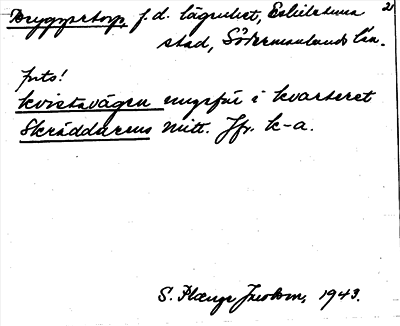 Bryggetorp f.d. lägenhet, Eskilstuna 2
stad, Södermanlands län.
forts!
Kvistavägen ungefär i kvarteret
Skräddarens mitt. Jfr. k-a.
S. 1943.